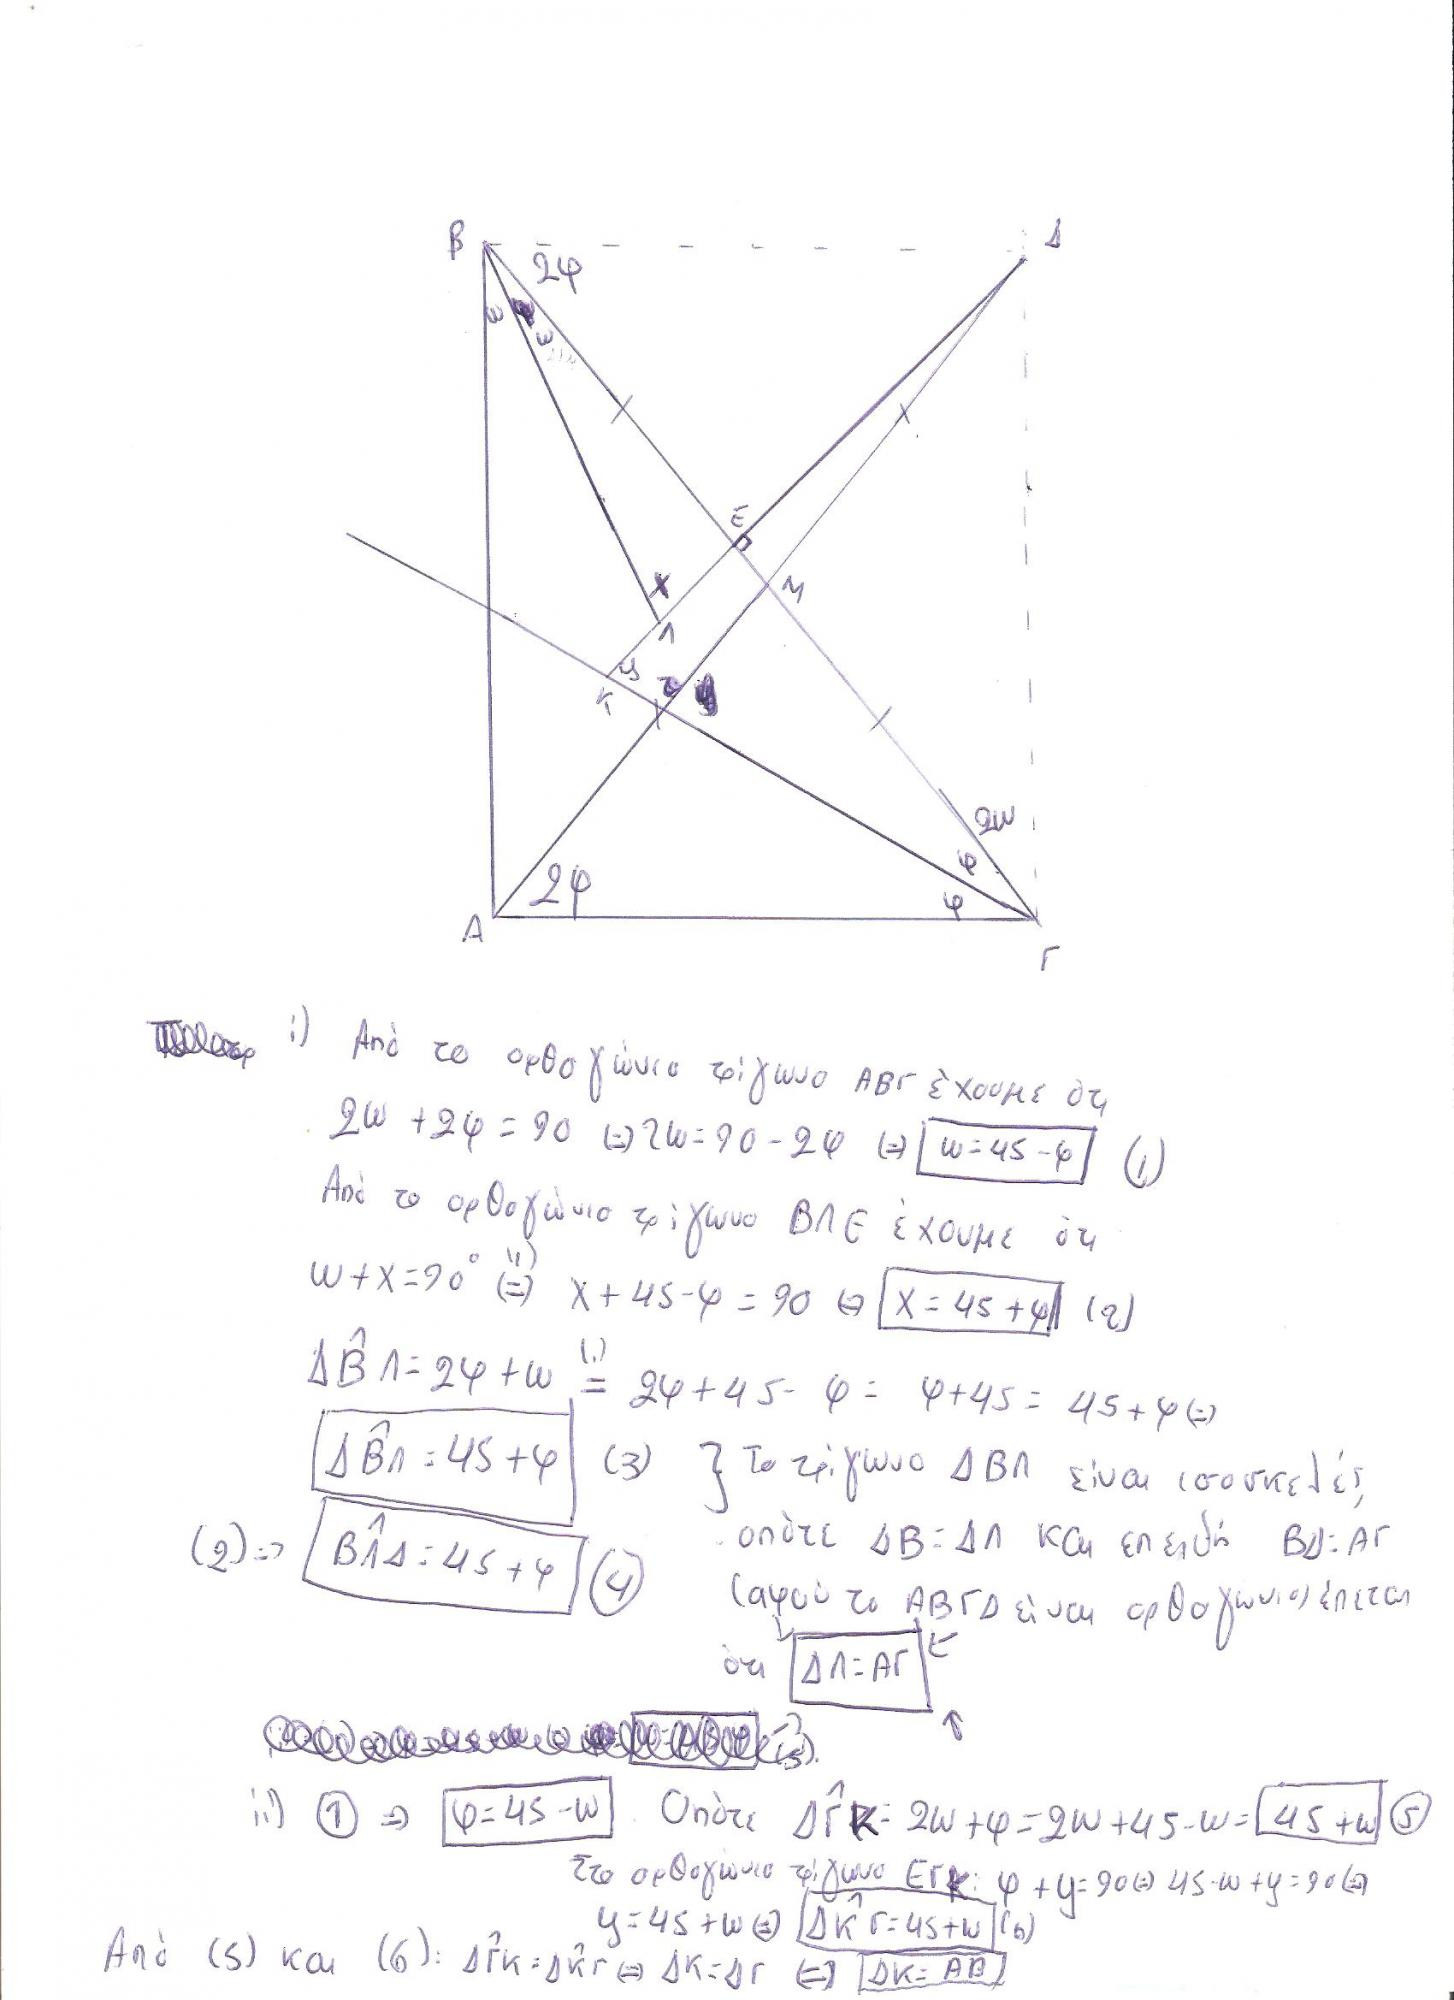 Β Δ
2φ
ω
ω
Ε
Μ
x
Λ
y
Κ
2ω
φ
2φ φ
Α
Γ
i) Από το ορθογώνιο τρίγωνο ΑΒΓ έχουμε ότι
2ω + 2φ = 90 ⇔ 2ω = 90 - 2φ ⇔ ω = 45 - φ (1)
Από το ορθογώνιο τρίγωνο ΒΛΕ έχουμε ότι
ω + x = 90° (1)⇔ x + 45 - φ = 90 ⇔ x = 45 + φ (2)
ΔB̂Λ = 2φ + ω (1)= 2φ + 45 - φ = φ + 45 = 45 + φ ⇔
ΔB̂Λ = 45 + φ (3) } Το τρίγωνο ΔΒΛ είναι ισοσκελές,
(2) ⇒ ΒΛ̂Δ = 45 + φ (4) οπότε ΔΒ = ΔΛ και επειδή ΒΔ = ΑΓ
(αφού το ΑΒΓΔ είναι ορθογώνιο) έπεται
ότι ΔΛ = ΑΓ
ii) (1) ⇒ φ = 45 - ω . Οπότε ΔΓ̂Κ = 2ω + φ = 2ω + 45 - ω = 45 + ω (5)
Στο ορθογώνιο τρίγωνο ΕΓΚ: φ + y = 90 ⇔ 45 - ω + y = 90 ⇔
y = 45 + ω ⇔ ΔΚ̂Γ = 45 + ω (6)
Από (5) και (6): ΔΓ̂Κ = ΔΚ̂Γ ⇔ ΔΚ = ΔΓ ⇔ ΔΚ = ΑΒ